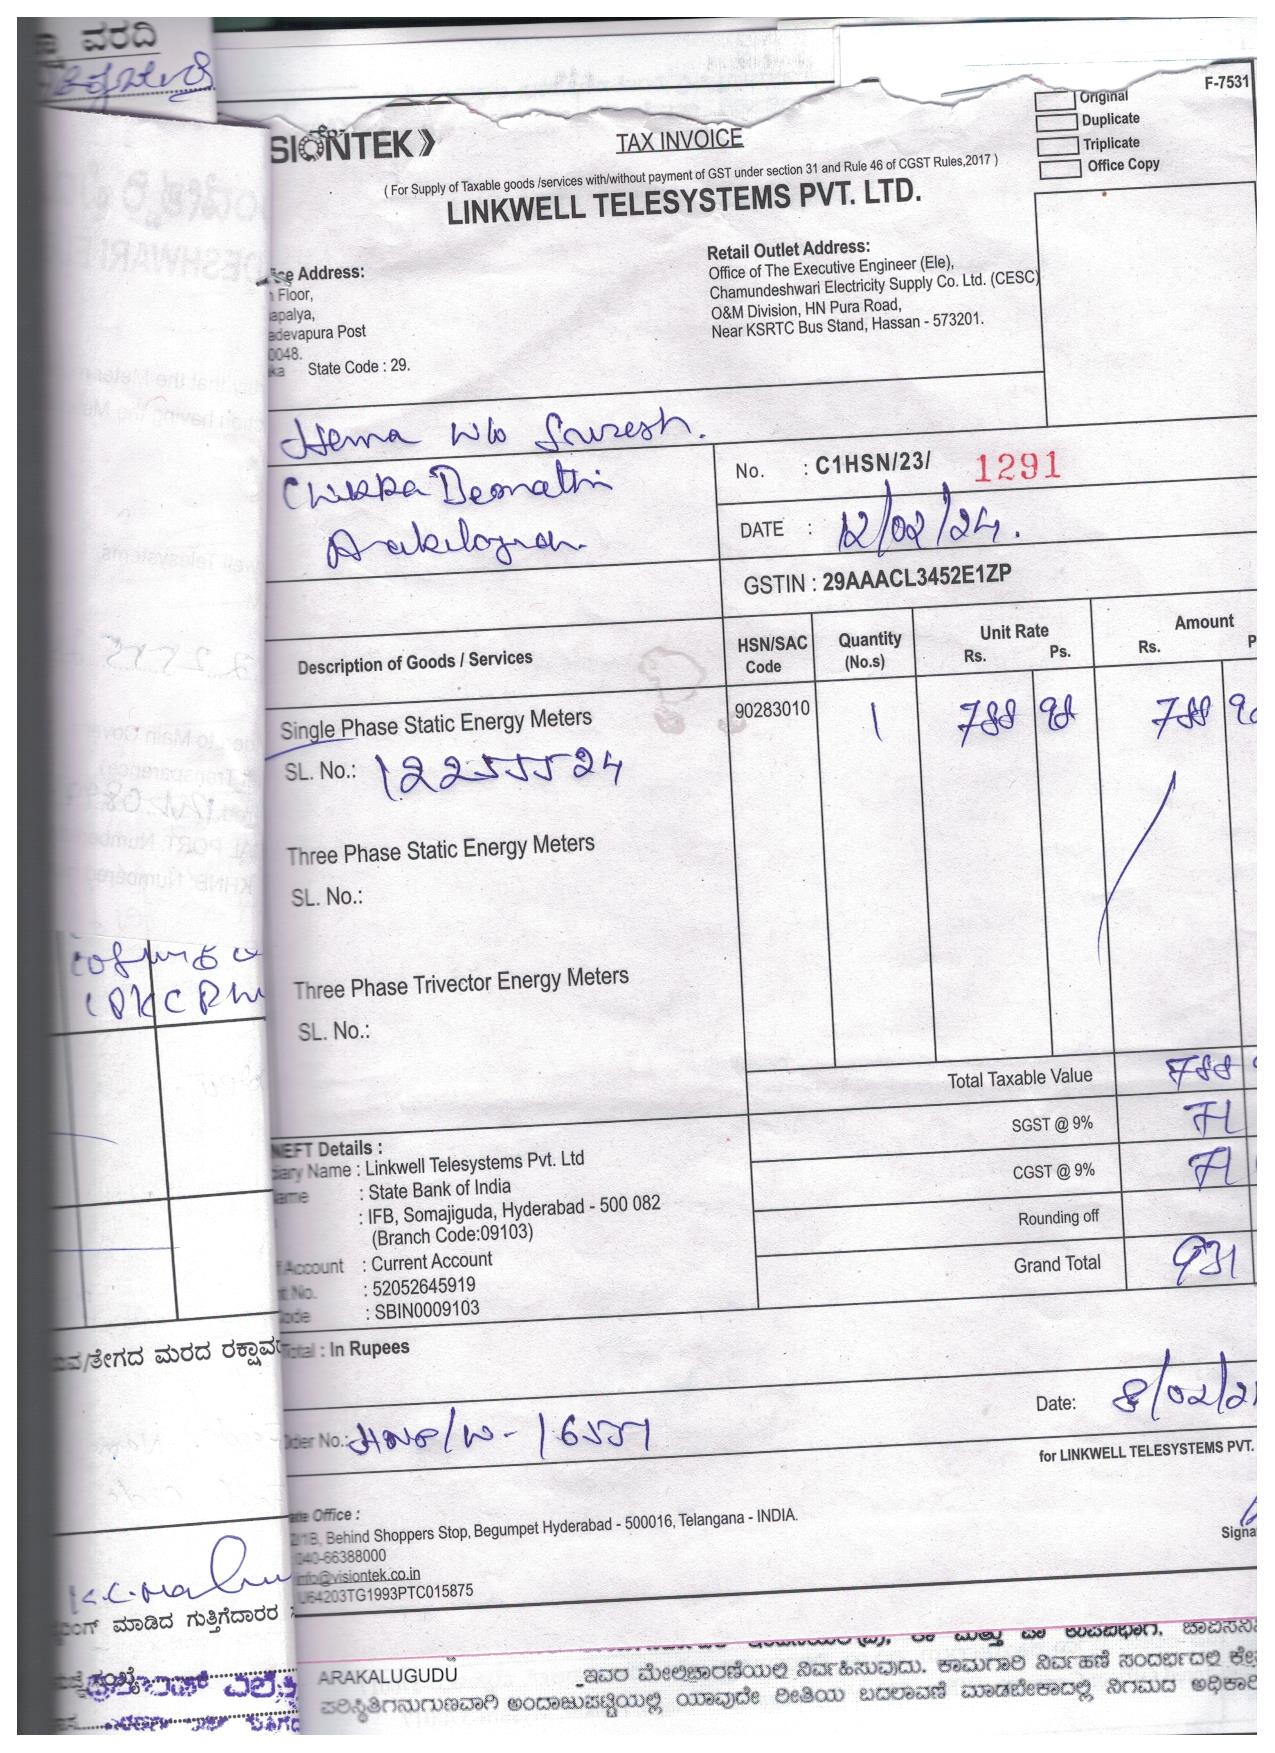 ವರದಿ
F-7531
Original
Duplicate
Triplicate
Office Copy
SIONTEK
TAX INVOICE
( For Supply of Taxable goods /services with/without payment of GST under section 31 and Rule 46 of CGST Rules,2017 )
LINKWELL TELESYSTEMS PVT. LTD.
Address:
Floor,
apalya,
adevapura Post
0048.
ka State Code : 29.
Retail Outlet Address:
Office of The Executive Engineer (Ele),
Chamundeshwari Electricity Supply Co. Ltd. (CESC)
O&M Division, HN Pura Road,
Near KSRTC Bus Stand, Hassan - 573201.
Hema W/o Suresh.
Chikka
No. : C1HSN/23/ 1291
DATE : 12/02/24.
GSTIN : 29AAACL3452E1ZP
Description of Goods / Services
HSN/SAC Code
Quantity (No.s)
Unit Rate Rs. Ps.
Amount Rs. P
Single Phase Static Energy Meters 90283010 1 788 98 788
SL. No.: 12255524
Three Phase Static Energy Meters
SL. No.:
Three Phase Trivector Energy Meters
SL. No.:
Total Taxable Value 788
SGST @ 9% 71
CGST @ 9% 71
Rounding off
Grand Total 931
NEFT Details :
iary Name : Linkwell Telesystems Pvt. Ltd
ame : State Bank of India
: IFB, Somajiguda, Hyderabad - 500 082
(Branch Code:09103)
Account : Current Account
t No. : 52052645919
ode : SBIN0009103
Total : In Rupees
Date: 8/02/2
der No.: 16551
for LINKWELL TELESYSTEMS PVT.
Signa
ate Office :
2/1B, Behind Shoppers Stop, Begumpet Hyderabad - 500016, Telangana - INDIA.
040-66388000
info@visiontek.co.in
U64203TG1993PTC015875
/ತೇಗದ ಮರದ
ಮಾಡಿದ ಗುತ್ತಿಗೆದಾರರ
ARAKALUGUDU ಇವರ ಮೇಲಿಚಾರಣೆಯಲ್ಲಿ ನಿರ್ವಹಿಸುವುದು. ಕಾಮಗಾರಿ ನಿರ್ವಹಣೆ ಸಂದರ್ಭದಲ್ಲಿ
ಪರಿಸ್ಥಿತಿಗನುಗುಣವಾಗಿ ಅಂದಾಜುಪಟ್ಟಿಯಲ್ಲಿ ಯಾವುದೇ ರೀತಿಯ ಬದಲಾವಣೆ ಮಾಡಬೇಕಾದಲ್ಲಿ ನಿಗಮದ